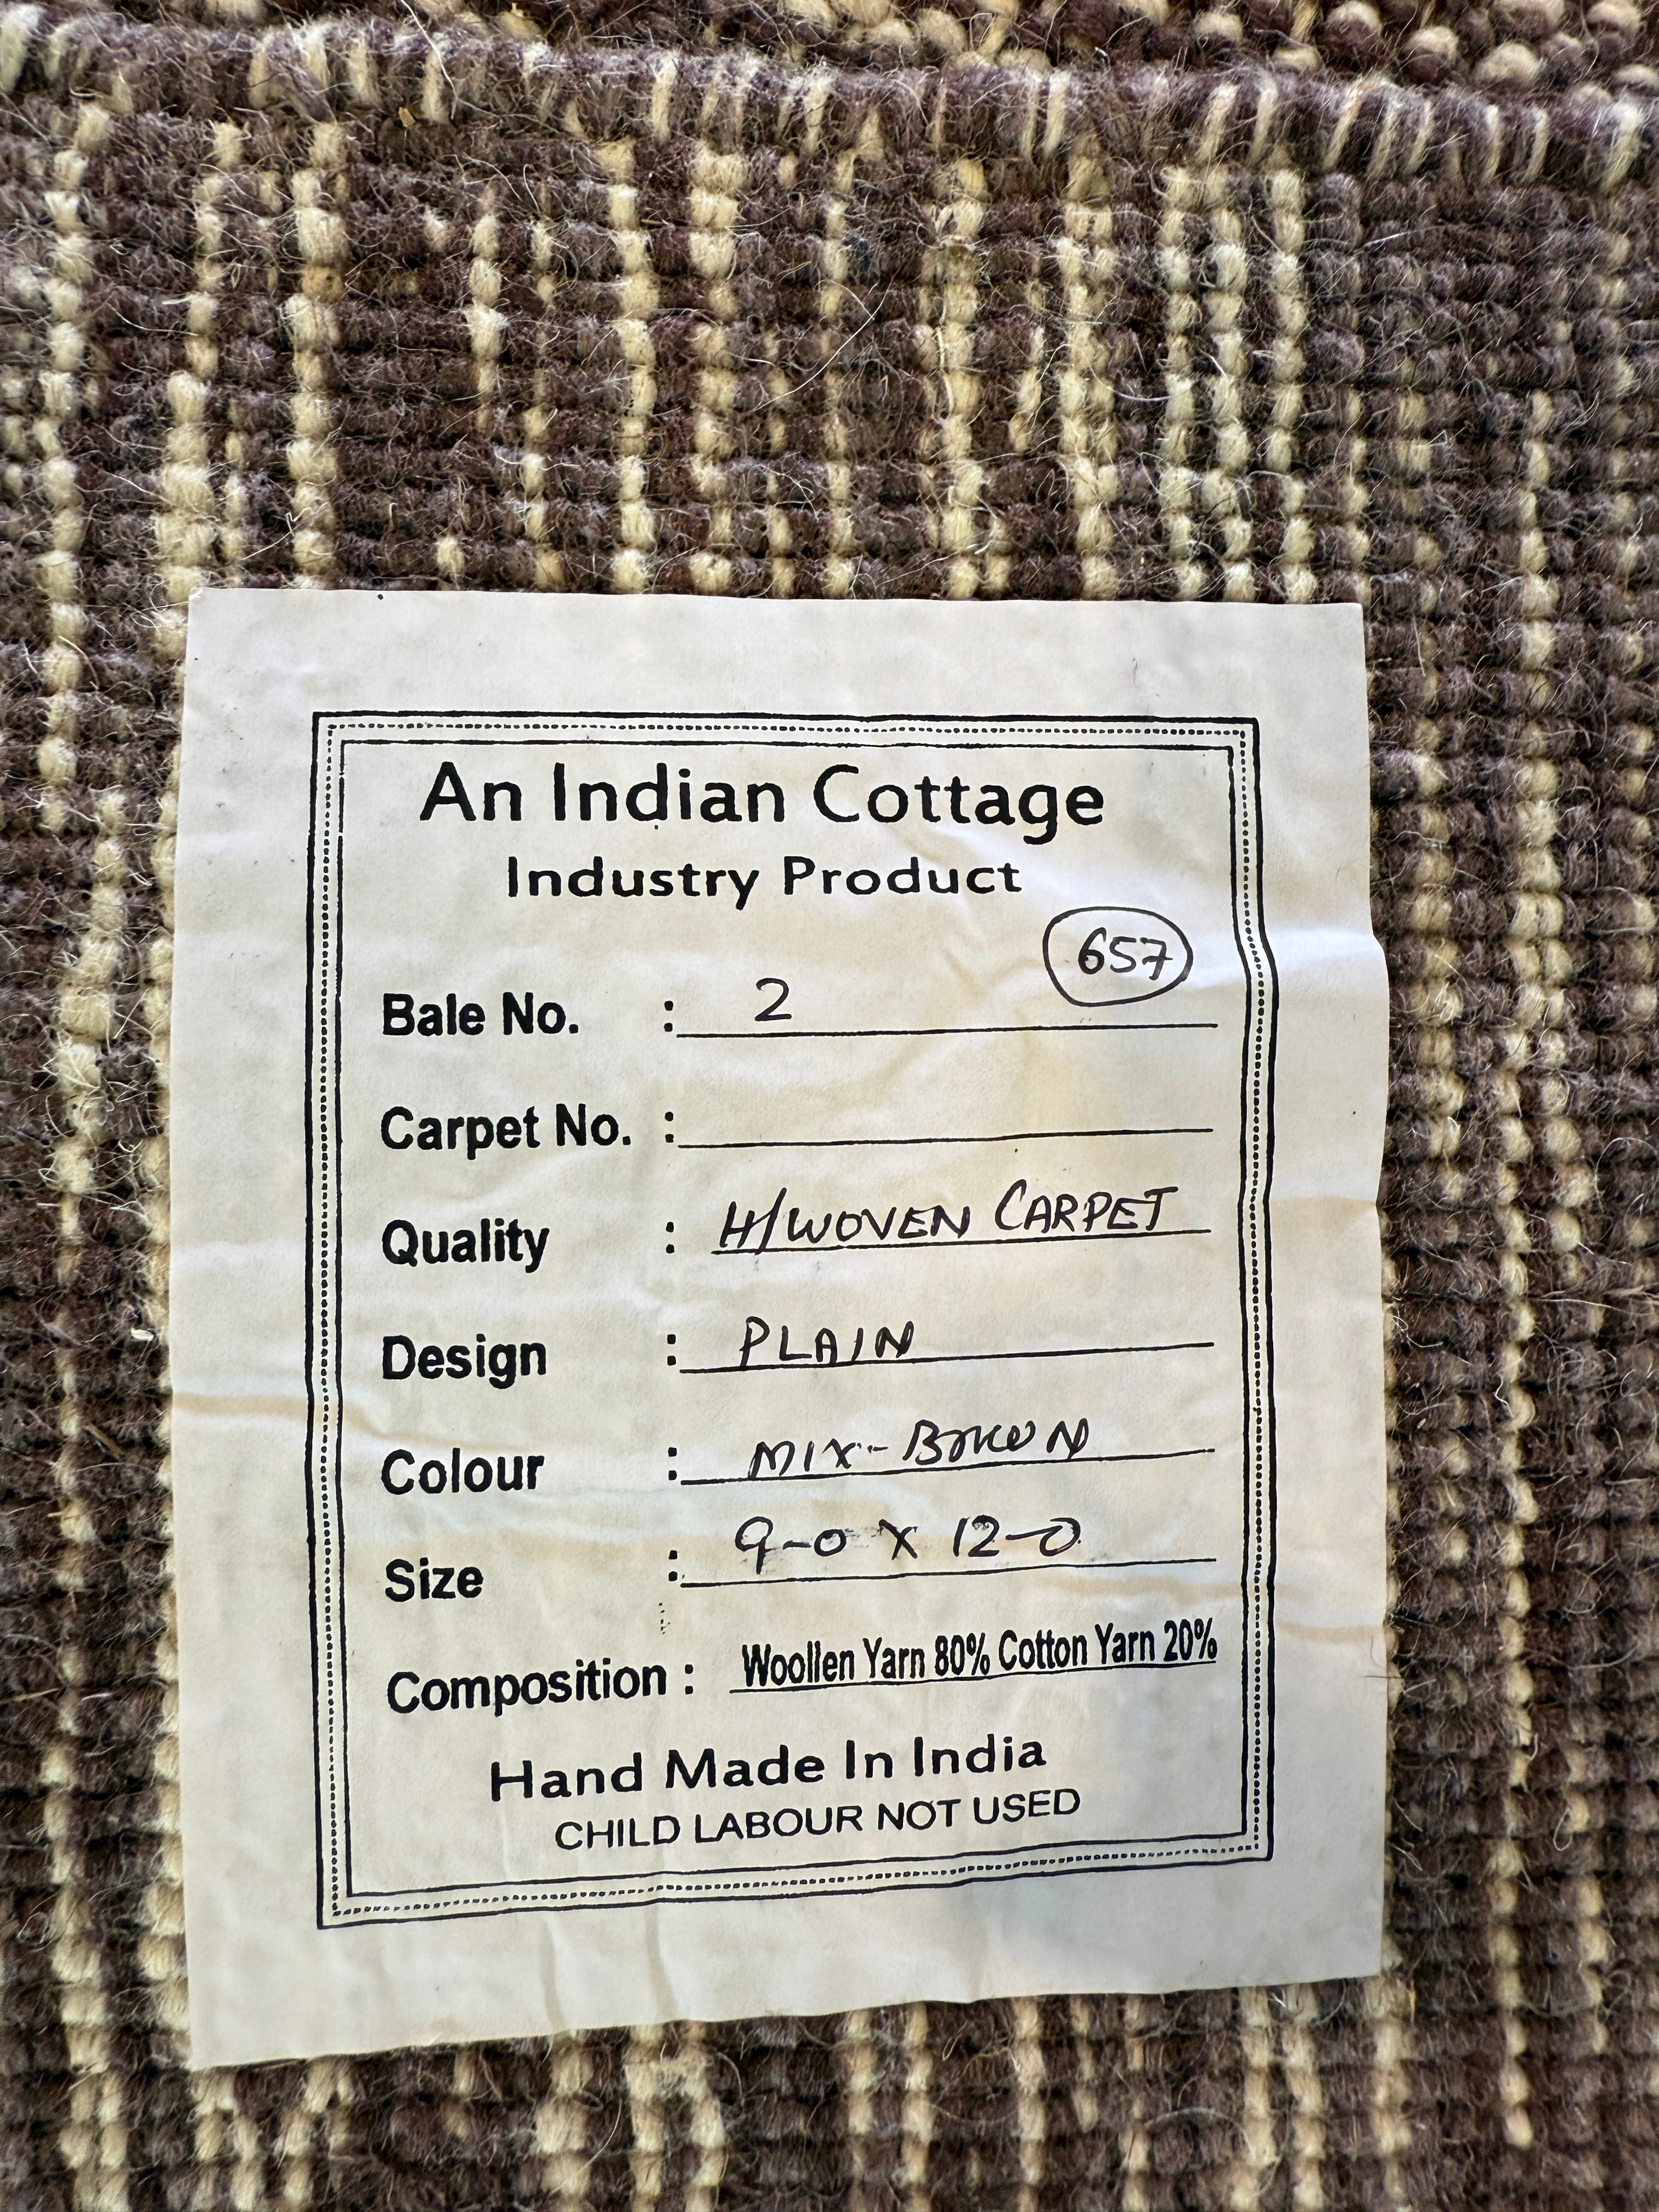 An Indian Cottage
Industry Product
657
Bale No. : 2
Carpet No. :
Quality : H/WOVEN CARPET
Design : PLAIN
Colour : MIX-BROWN
Size : 9-0 X 12-0
Composition : Woollen Yarn 80% Cotton Yarn 20%
Hand Made In India
CHILD LABOUR NOT USED